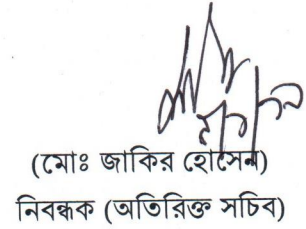 (মোঃ জাকির হোসেন)
নিবন্ধক (অতিরিক্ত সচিব)